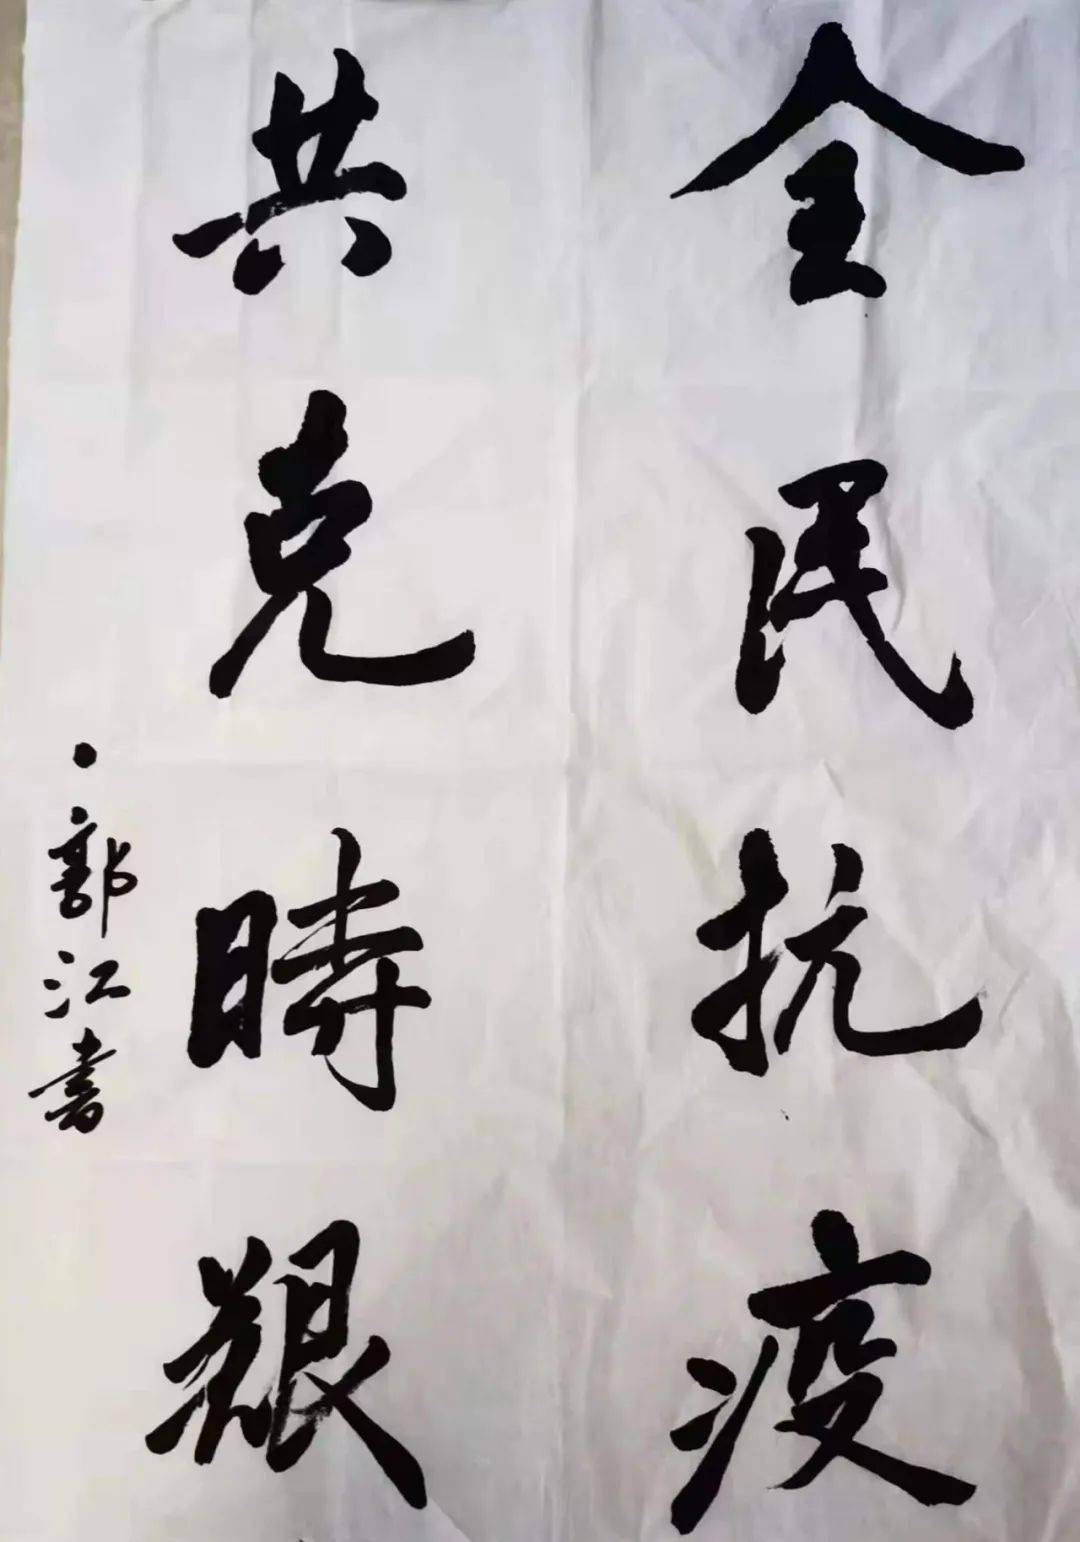 全民抗疫
共克時艱
郭江書